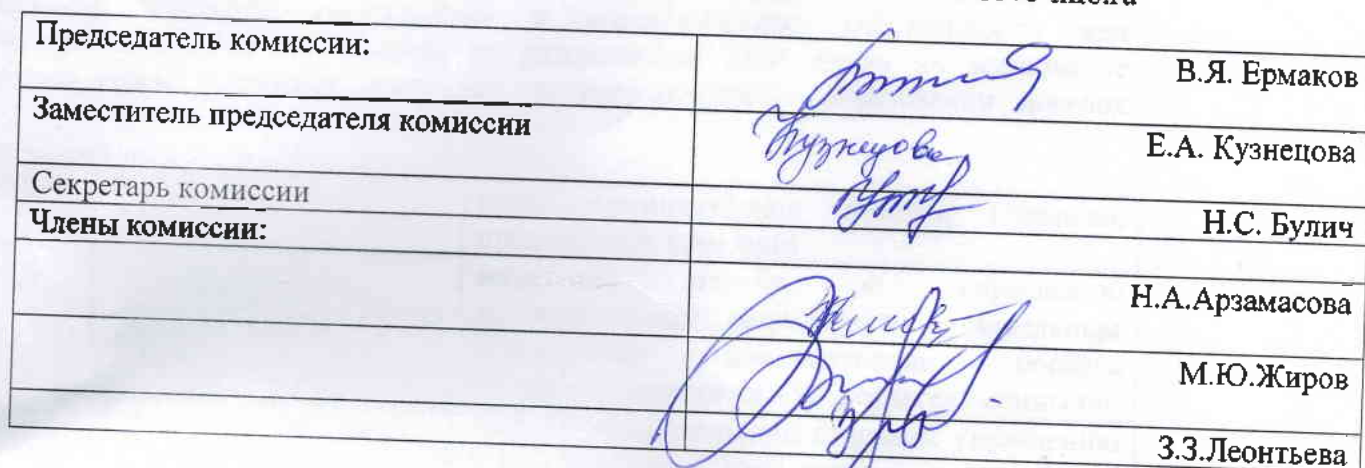 Председатель комиссии:
В.Я. Ермаков
Заместитель председателя комиссии
Кузнецова
Е.А. Кузнецова
Секретарь комиссии
Н.С. Булич
Члены комиссии:
Н.А.Арзамасова
М.Ю.Жиров
З.З.Леонтьева